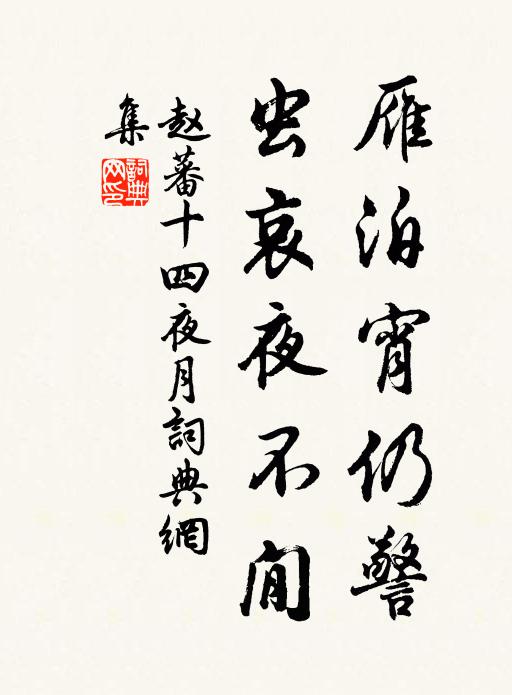 雁泊宵仍警
虫哀夜不閒
赵蕃十四夜月詞典網
集
詞典
网印